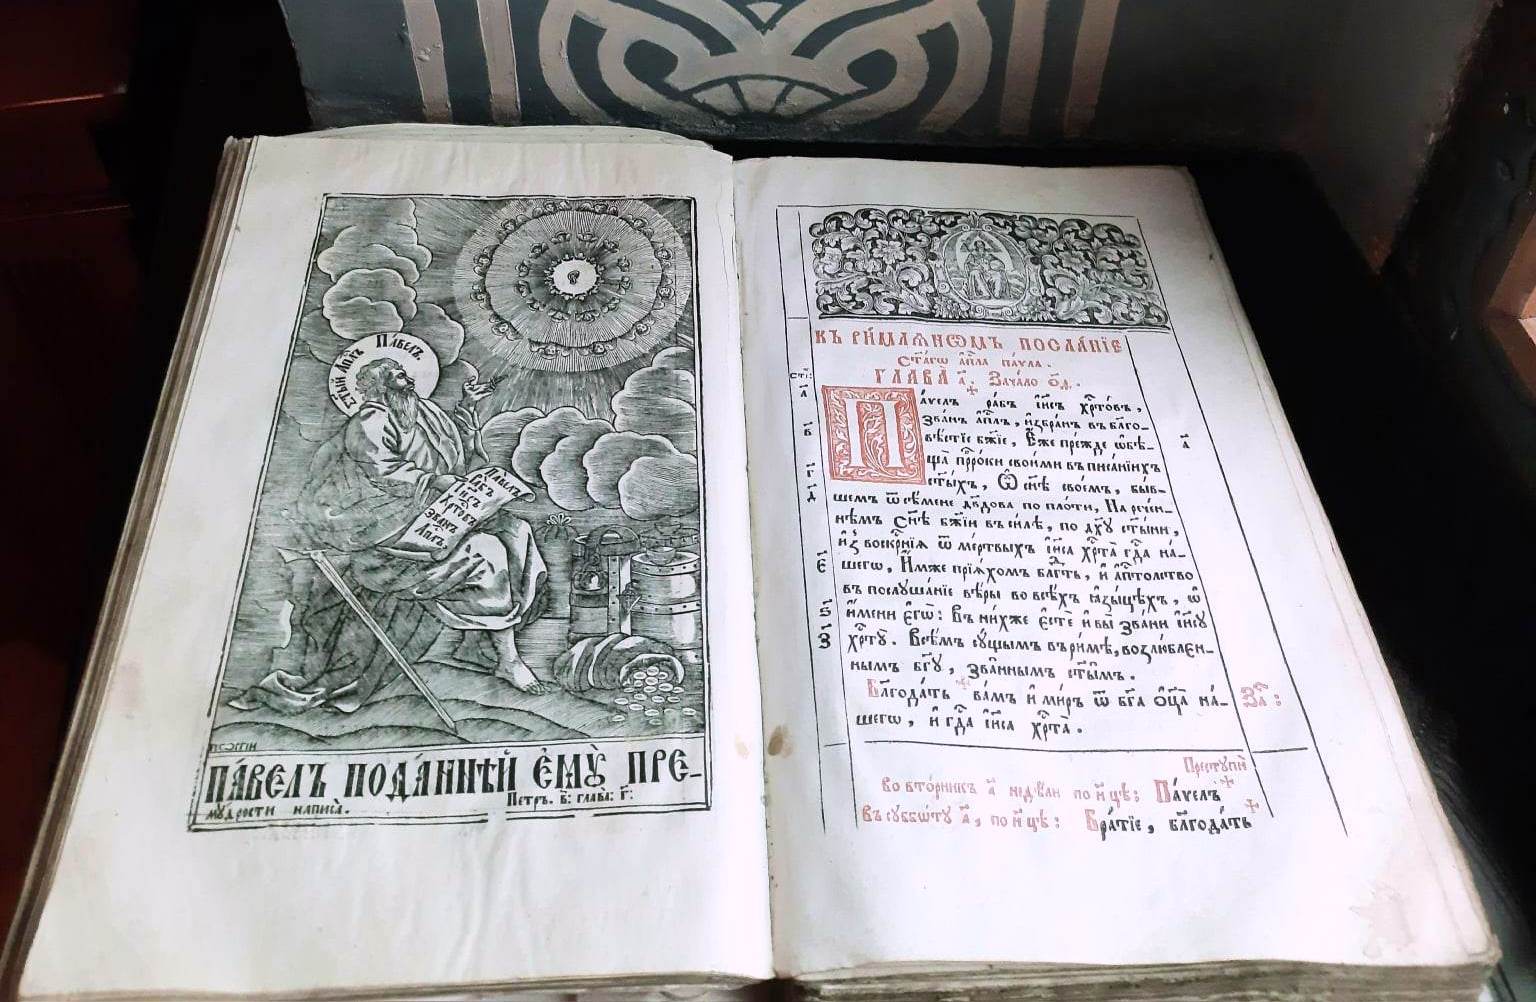 С҃тый Ап҃лъ Па́велъ
Па́велъ
Рабъ
І҆и҃съ
Хр҃товъ
Зва́нъ
Ап҃лъ.
ПА́ВЕЛЪ ПОДА́ННѢЙ Е҆МꙊ̀ ПРЕ-
мꙋ́дрости написа̀. Петръ. в҃: глава̀: г҃:
КЪ РИ́МЛѦНѠМЪ ПОСЛА́НЇЕ
ст҃а́гѡ а҆п҃ла па́ѵла.
ГЛАВА̀ а҃. Зача́ло ѻ҃д.
Па́ѵелъ ра́бъ і҆и҃съ хр҃то́въ,
зва́нъ а҆п҃лъ, и҆збра́нъ въ бл҃го-
вѣ́стїе бж҃їе, Е҆́же пре́жде ѡ҆бѣ-
ща̀ прⷪ҇ро́ки свои́ми въ писа́нїихъ
ст҃ы́хъ, Ѽ сн҃ѣ свое́мъ, бы́в-
шемъ ѿ сѣ́мене дв҃дова по пло́ти, Нарече́н-
нѣмъ сн҃ѣ бж҃їи въ си́лѣ, по дх҃ꙋ ст҃ы́ни,
и҆з̾ воскрⷭ҇нїѧ ѿ ме́ртвыхъ і҆и҃са хр҃та̀ гдⷭ҇а на́-
шегѡ, И҆́мже прїѧ́хомъ бл҃гть, и҆ а҆пⷭ҇толство
въ послꙋша́нїе вѣ́ры во всѣ́хъ ꙗ҆зы́цѣхъ, ѡ҆
и҆́мени є҆гѡ̀: Въ ни́хже є҆стѐ и҆ вы̀ зва́ни і҆и҃сꙋ
хр҃тꙋ̀. Всѣ́мъ сꙋ́щымъ въ ри́мѣ, возлю́блен-
нымъ бг҃ꙋ, зва̑ннымъ ст҃ы̑мъ.
Бл҃года́ть ва́мъ и҆ ми́ръ ѿ бг҃а ѻ҆ц҃а̀ на́-
шегѡ, и҆ гдⷭ҇а і҆и҃са хр҃та̀.
стї:
а҃
в҃
г҃
д҃
є҃
ѕ҃
з҃
а҃
За҃:
Престꙋпі̀:
во вто́рникъ а҃ недѣ́ли по н҃цѣ: Па́ѵелъ
въ сꙋббѡ́тꙋ а҃, по н҃цѣ: Бра́тїе, бл҃года́ть